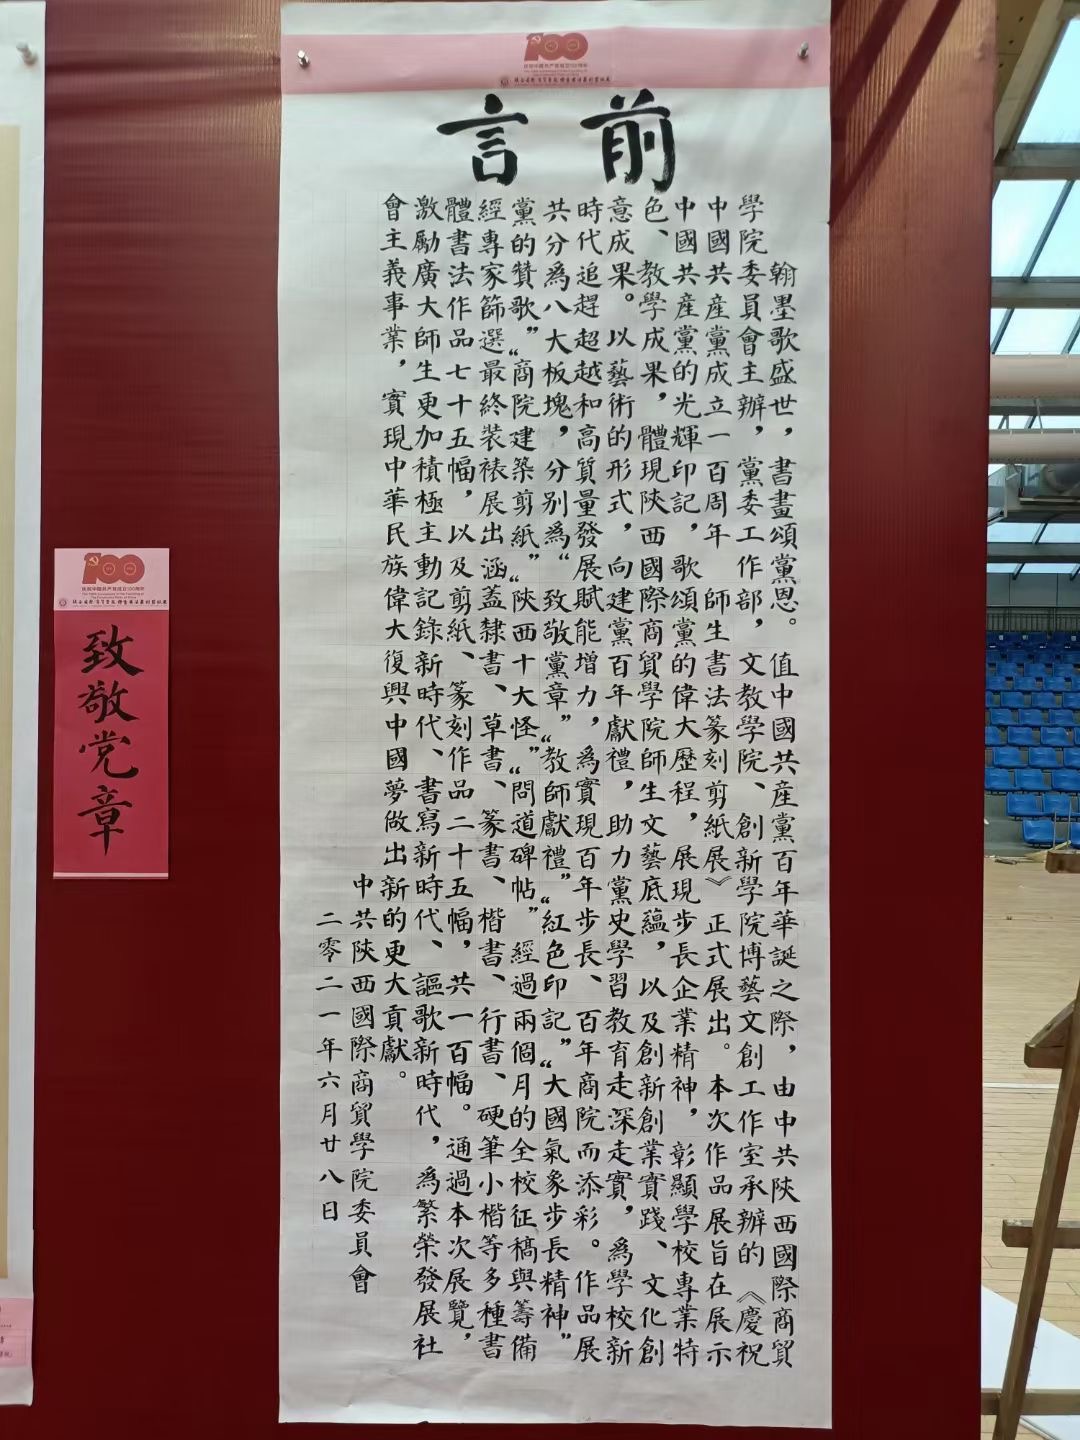 前言
翰墨歌盛世，書畫頌黨恩。值中國共産黨百年華誕之際，由中共陝西國際商貿
學院委員會主辦，黨委工作部，文教學院、創新學院博藝文創工作室承辦的《慶祝
中國共産黨成立一百周年 師生書法篆刻剪紙展》正式展出。本次作品展旨在展示
中國共産黨的光輝印記，歌頌黨的偉大歷程，展現步長企業精神，彰顯學校專業特
色、教學成果，體現陝西國際商貿學院師生文藝底藴，以及創新創業實踐、文化創
意成果。以藝術的形式，向建黨百年獻禮，助力黨史學習教育走深走實，爲學校新
時代追趕超越和高質量發展賦能增力，爲實現百年步長、百年商院而添彩。作品展
共分爲八大板塊，分别爲“致敬黨章”“教師獻禮”“紅色印記”“大國氣象步長精神”
黨的贊歌”“商院建築剪紙”“陝西十大怪”“問道碑帖”經過兩個月的全校征稿與籌備
經專家篩選最終裝裱展出涵蓋隸書、草書、篆書、楷書、行書、硬筆小楷等多種書
體書法作品七十五幅，以及剪紙、篆刻作品二十五幅，共一百幅。通過本次展覽，
激勵廣大師生更加積極主動記錄新時代、書寫新時代、謳歌新時代，爲繁榮發展社
會主義事業，實現中華民族偉大復興中國夢做出新的更大貢獻。
中共陝西國際商貿學院委員會
二零二一年六月廿八日
100
庆祝中国共产党成立100周年
100
庆祝中国共产党成立100周年
致敬党章